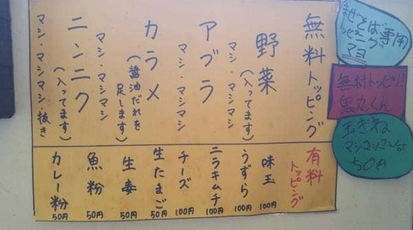 無料トッピング
野菜
(入ってます)
マシ・マシマシ
アブラ
マシ・マシマシ
カラメ
(醤油だれを
足します)
マシ・マシマシ
ニンニク
(入ってます)
マシ・マシマシ・抜き
有料
トッピング
味玉 100円
うずら 100円
ニラキムチ 100円
チーズ 100円
生たまご 50円
生姜 50円
魚粉 50円
カレー粉 50円
マヨ
無料トッピング
玉ねぎ
マシマシ
50円